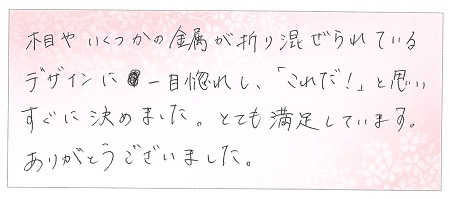 木目や いくつかの金属が折り混ぜられている
デザインに 一目惚れし、「これだ!」と思い
すぐに決めました。とても満足しています。
ありがとうございました。